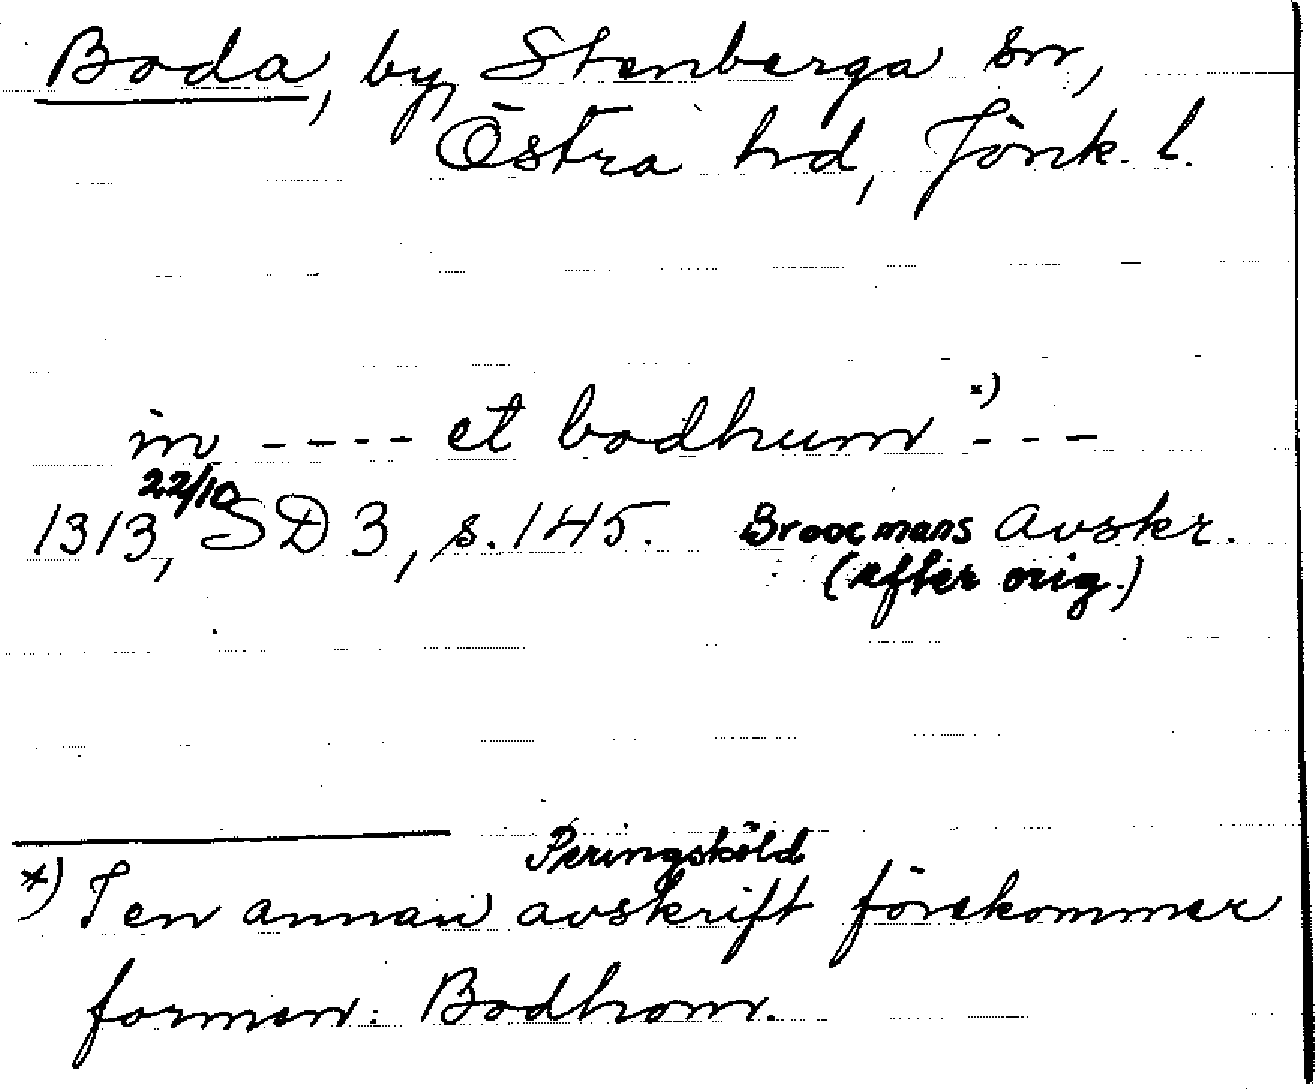 Boda, by, Stenberga sn,
Östra hd, Jönk. l.
in ---- et bodhum *) ---
22/10
1313, SD 3, s. 145. Broocmans avskr.
(efter orig.)
Peringsköld
*) I en annan avskrift förekommer
formen: Bodhom.